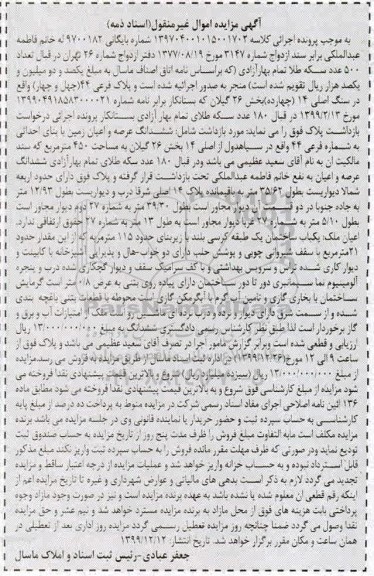 آگهی مزایده اموال غیرمنقول(اسناد ذمه)
به موجب پرونده اجرائی کلاسه ۱۳۹۷۰۴۰۰۱۰۱۵۰۰۱۷۰۲ شماره بایگانی ۹۷۰۰۱۸۲ له خانم فاطمه
عبدالملکی برابر سند ازدواج شماره ۳۱۴۷ مورخ ۱۳۷۷/۰۸/۱۹ دفتر ازدواج شماره ۲۶ تهران در قبال تعداد
۵۰۰ عدد سکه طلا تمام بهارآزادی (که براساس نامه اتاق اصناف ماسال به مبلغ یکصد و دو میلیون و
یکصد هزار ریال تقویم شده است) منجر به صدور اجرائیه شده است و پلاک فرعی ۴۴(چهل و چهار) واقع
در سنگ اصلی ۱۴ (چهارده)بخش ۲۶ گیلان که بستانکار برابر نامه شماره ۱۳۹۹۰۴۹۱۸۵۸۳۰۰۰۰۲۱
مورخ ۱۳۹۹/۲/۱۳ در قبال ۱۸۰ عدد سکه طلای تمام بهار آزادی بستانکار پرونده اجرائی درخواست
بازداشت پلاک فوق را می نماید: مورد بازداشت شامل: ششدانگ عرصه و اعیان زمین با بنای احداثی
به شماره فرعی ۴۴ واقع در سیاهدول از اصلی ۱۴ بخش ۲۶ گیلان به مساحت ۴۵۰ مترمربع که سند
مالکیت آن به نام آقای سعید عظیمی می باشد ودر قبال ۱۸۰ عدد سکه طلای تمام بهارآزادی ششدانگ
عرصه و اعیان به نفع خانم فاطمه عبدالملکی تحت بازداشت قرار گرفته و پلاک فوق دارای حدود اربعه
شمالا دیواریست بطول ۳۵/۶۲ متر به باقیمانده پلاک ۱۴ اصلی شرقا درب و دیواریست بطول ۱۲/۹۳ متر
به جاده جنوبا در دو قسمت با دیوار مجاور است بطول ۳۹/۳۰ متر به شماره ۲۷ دوم دیوار مجاور است
بطول ۵/۱۰ متر به شماره ۲۷ غربا دیوار مجاور است به طول ۱۳ متر به شماره ۲۷ حقوق ارتفاقی ندارد.
اعیان ملک: یکباب ساختمان یک طبقه کرسی بلند با زیربنای حدود ۱۱۵ مترمربع که از این مقدار حدود
۲۱مترمربع با سقف شیروانی چوبی و پوشش حلب دارای دو خواب-هال و پذیرایی آشپزخانه با کابینت و
دیوار کاری شده تراس و سرویس بهداشتی و با کف سرامیک سقف و دیوار گچکاری شده درب و پنجره
آلومینیوم نما سیمانبری دور تا دور ساختمان دارای پیاده روی بتنی به عرض ۰/۸ متر است گرمایش
ساختمان با بخاری گازی و تامین آب گرم با آبگرمکن گازی است محوطه با قطعات بتنی باغچه بندی
شده و از سمت شرق دارای دیوار نرده و درب نرده ای ماشین رو می باشد و از امتیازات آب و برق و
گاز برخوردار است لذا طبق نظر کارشناس رسمی دادگستری ششدانگ به مبلغ ۱۳/۰۰۰/۰۰۰/۰۰۰ ریال
ارزیابی و قطعی شده است وبرابر گزارش مامور اجرا در تصرف آقای سعید عظیمی می باشد و پلاک فوق از
ساعت ۹ الی ۱۲ مورخ(۱۳۹۹/۱۲/۲۶)در اداره ثبت اسناد ماسال از طریق مزایده به فروش می رسد.مزایده
از مبلغ ۱۳/۰۰۰/۰۰۰/۰۰۰ ریال (سیزده میلیارد ریال) شروع و بالاترین قیمت پیشنهادی نقدا فروخته می
شود مزایده از مبلغ کارشناسی فوق شروع و به بالاترین قیمت پیشنهادی نقدا فروخته می شود مطابق ماده
۱۳۶ آئین نامه اصلاحی اجرای مفاد اسناد رسمی شرکت در مزایده منوط به پرداخت ده درصد از مبلغ پایه
کارشناسی به حساب سپرده ثبت و حضور خریدار یا نماینده قانونی وی در جلسه مزایده می باشد برنده
مزایده مکلف است مابه التفاوت مبلغ فروش را ظرف مدت پنج روز از تاریخ مزایده به حساب صندوق ثبت
تودیع نماید ودر صورتی که ظرف مهلت مقرر مانده فروش را به حساب سپرده ثبت واریز نکند مبلغ مذکور
قابل استرداد نبوده و به حساب خزانه واریز خواهد شد و عملیات مزایده از درجه اعتبار ساقط و مزایده
تجدید می گردد لازم به ذکر است بدهی های مالیاتی و عوارض شهرداری و غیره تا تاریخ مزایده اعم از
اینکه رقم قطعی ان معلوم شده یا نشده باشد به عهده برنده مزایده است و نیز در صورت وجود مازاد وجوه
پرداختی بابت هزینه های فوق از محل مازاد به برنده مزایده مسترد خواهد شد و نیم عشر و حق مزایده
نقدا وصول می گردد ضمنا چنانچه روز مزایده تعطیل رسمی گردد مزایده روز اداری بعد از تعطیلی در
همان ساعت و مکان مقرر برگزار خواهد شد. تاریخ انتشار: ۱۳۹۹/۱۲/۱۲
جعفر عبادی-رئیس ثبت اسناد و املاک ماسال